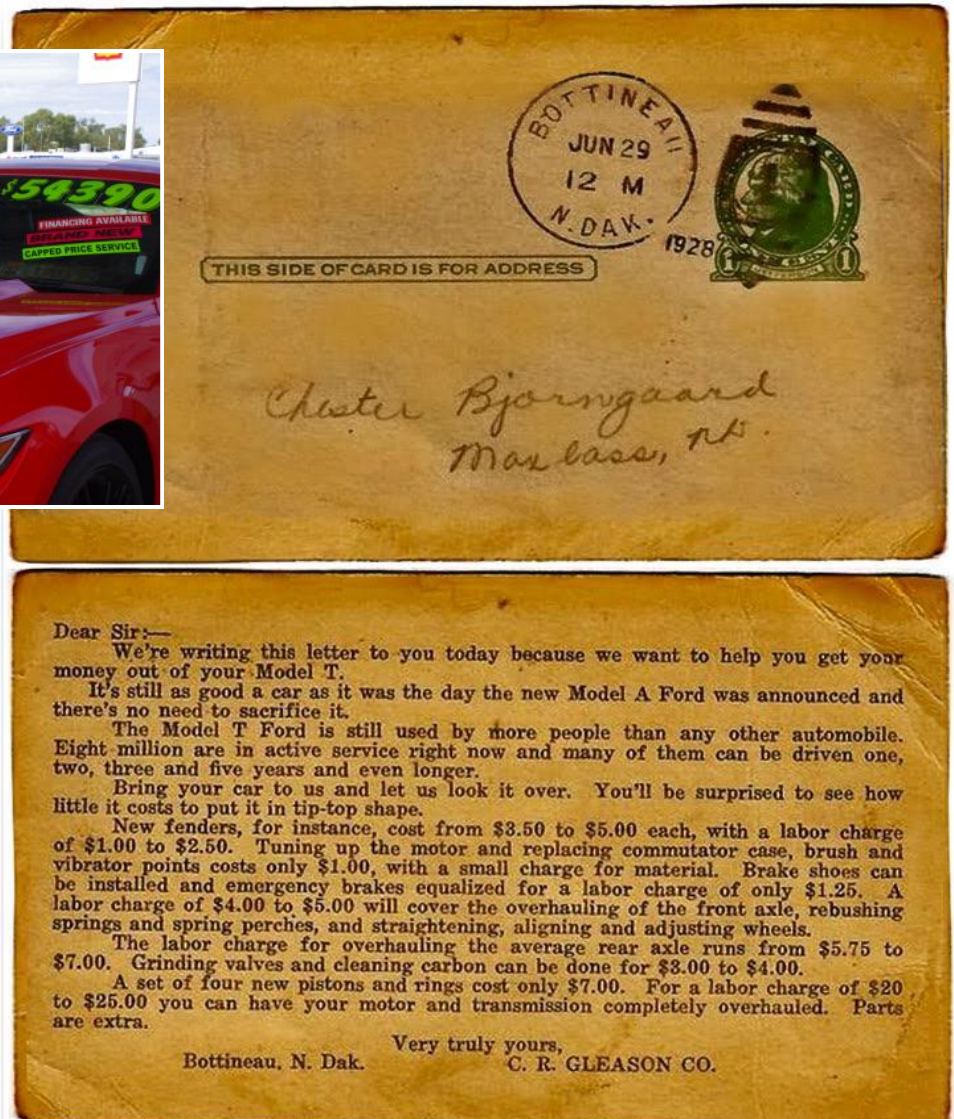 BOTTINEAU
JUN 29
12 M
N. DAK.
1928
1 1
JEFFERSON
THIS SIDE OF CARD IS FOR ADDRESS
Chester Bjorngaard
Maxbass, N.D.
Ford
$54390
FINANCING AVAILABLE
BRAND NEW
CAPPED PRICE SERVICE
Dear Sir:—
We're writing this letter to you today because we want to help you get your
money out of your Model T.
It's still as good a car as it was the day the new Model A Ford was announced and
there's no need to sacrifice it.
The Model T Ford is still used by more people than any other automobile.
Eight million are in active service right now and many of them can be driven one,
two, three and five years and even longer.
Bring your car to us and let us look it over. You'll be surprised to see how
little it costs to put it in tip-top shape.
New fenders, for instance, cost from $3.50 to $5.00 each, with a labor charge
of $1.00 to $2.50. Tuning up the motor and replacing commutator case, brush and
vibrator points costs only $1.00, with a small charge for material. Brake shoes can
be installed and emergency brakes equalized for a labor charge of only $1.25. A
labor charge of $4.00 to $5.00 will cover the overhauling of the front axle, rebushing
springs and spring perches, and straightening, aligning and adjusting wheels.
The labor charge for overhauling the average rear axle runs from $5.75 to
$7.00. Grinding valves and cleaning carbon can be done for $3.00 to $4.00.
A set of four new pistons and rings cost only $7.00. For a labor charge of $20
to $25.00 you can have your motor and transmission completely overhauled. Parts
are extra.
Very truly yours,
Bottineau, N. Dak. C. R. GLEASON CO.